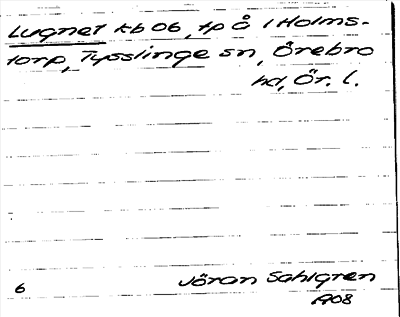 Lugnet kb 06, tp å 1 Holms-
torp, Tysslinge sn, Örebro
hd, Ör. l.
6
Jöran Sahlgren
1908